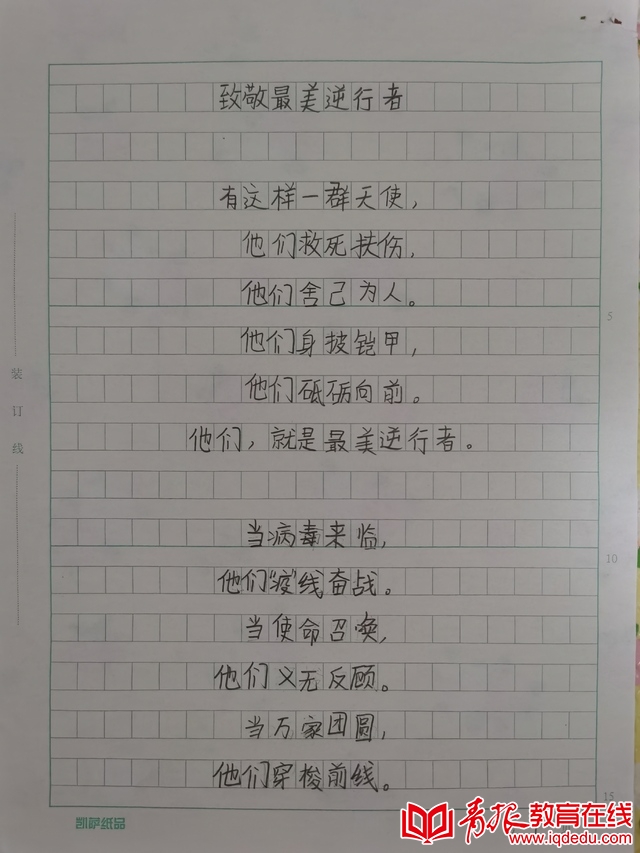 致敬最美逆行者
有这样一群天使，
他们救死扶伤，
他们舍己为人。
他们身披铠甲，
他们砥砺向前。
他们，就是最美逆行者。
当病毒来临，
他们“疫”线奋战。
当使命召唤，
他们义无反顾。
当万家团圆，
他们穿梭前线。
装订线
5
10
15
凯萨纸品
青报教育在线
www.iqdedu.com